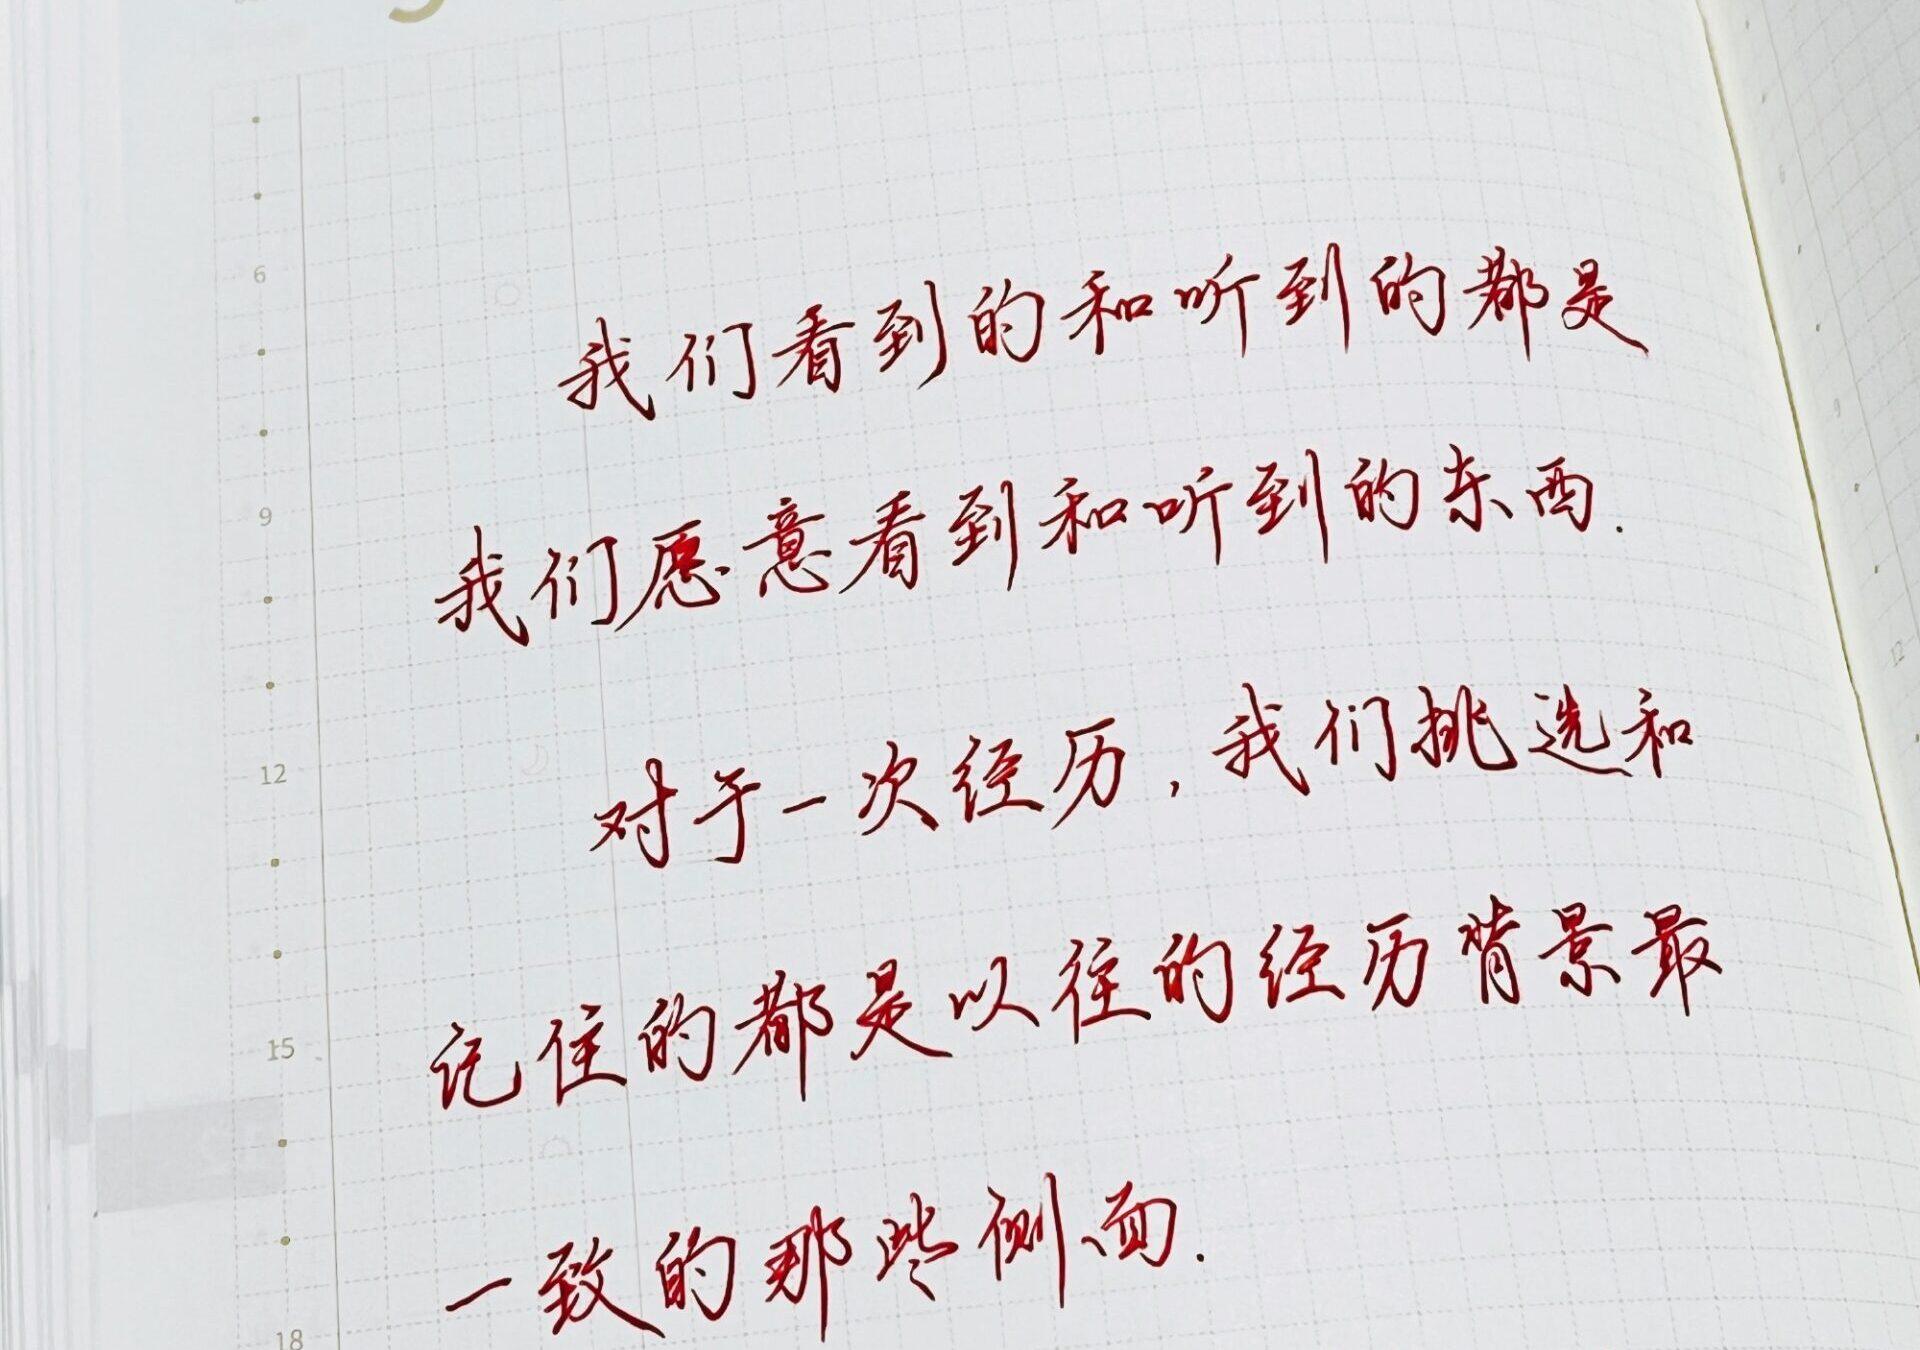 6
9
12
15
18
我们看到的和听到的都是
我们愿意看到和听到的东西.
对于一次经历,我们挑选和
记住的都是以往的经历背景最
一致的那些侧面.
9
12